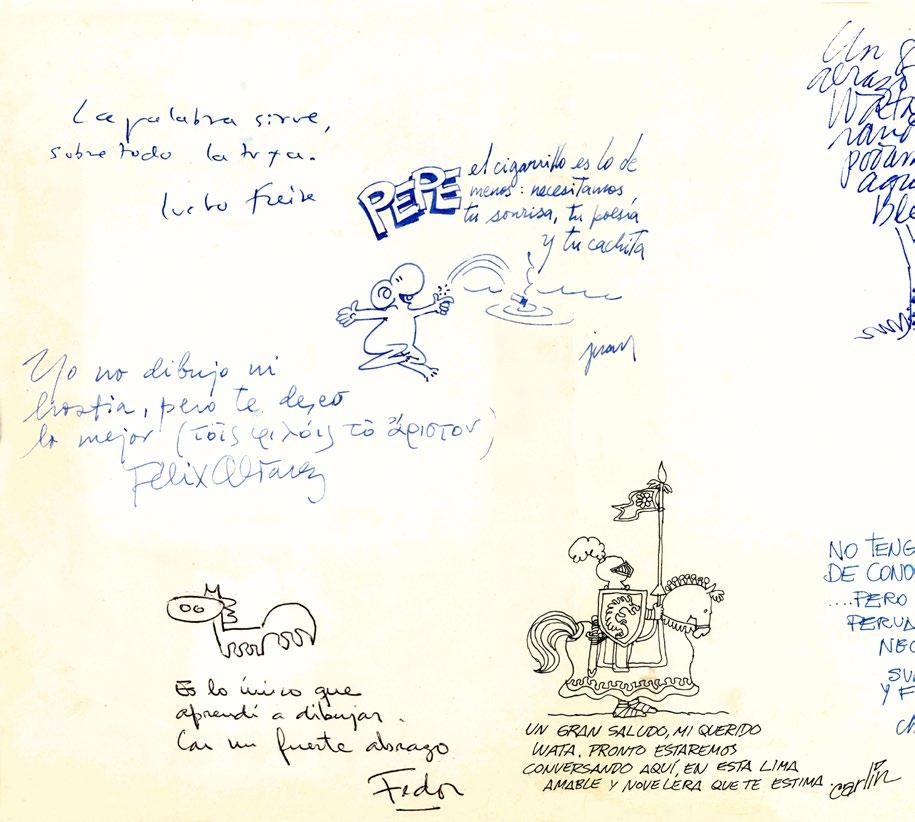 La palabra sirve,
sobre todo la tuya.
lucho Freire
PEPE
el cigarrillo es lo de
menos: necesitamos
tu sonrisa, tu poesía
y tu cachita
juan
Yo no dibujo ni
hostia, pero te deseo
lo mejor (τοῖς φιλόις τὸ ἄριστον)
Félix Álvarez
Es lo único que
aprendí a dibujar.
Con un fuerte abrazo
Fedor
UN GRAN SALUDO, MI QUERIDO
WATA. PRONTO ESTAREMOS
CONVERSANDO AQUÍ, EN ESTA LIMA
AMABLE Y NOVELERA QUE TE ESTIMA
carlín
Un g
abrazo
Wata
podam
aquí
Ble
NO TENG
DE CONO
....PERO
PERUA
NEG
SU
Y F
Ch